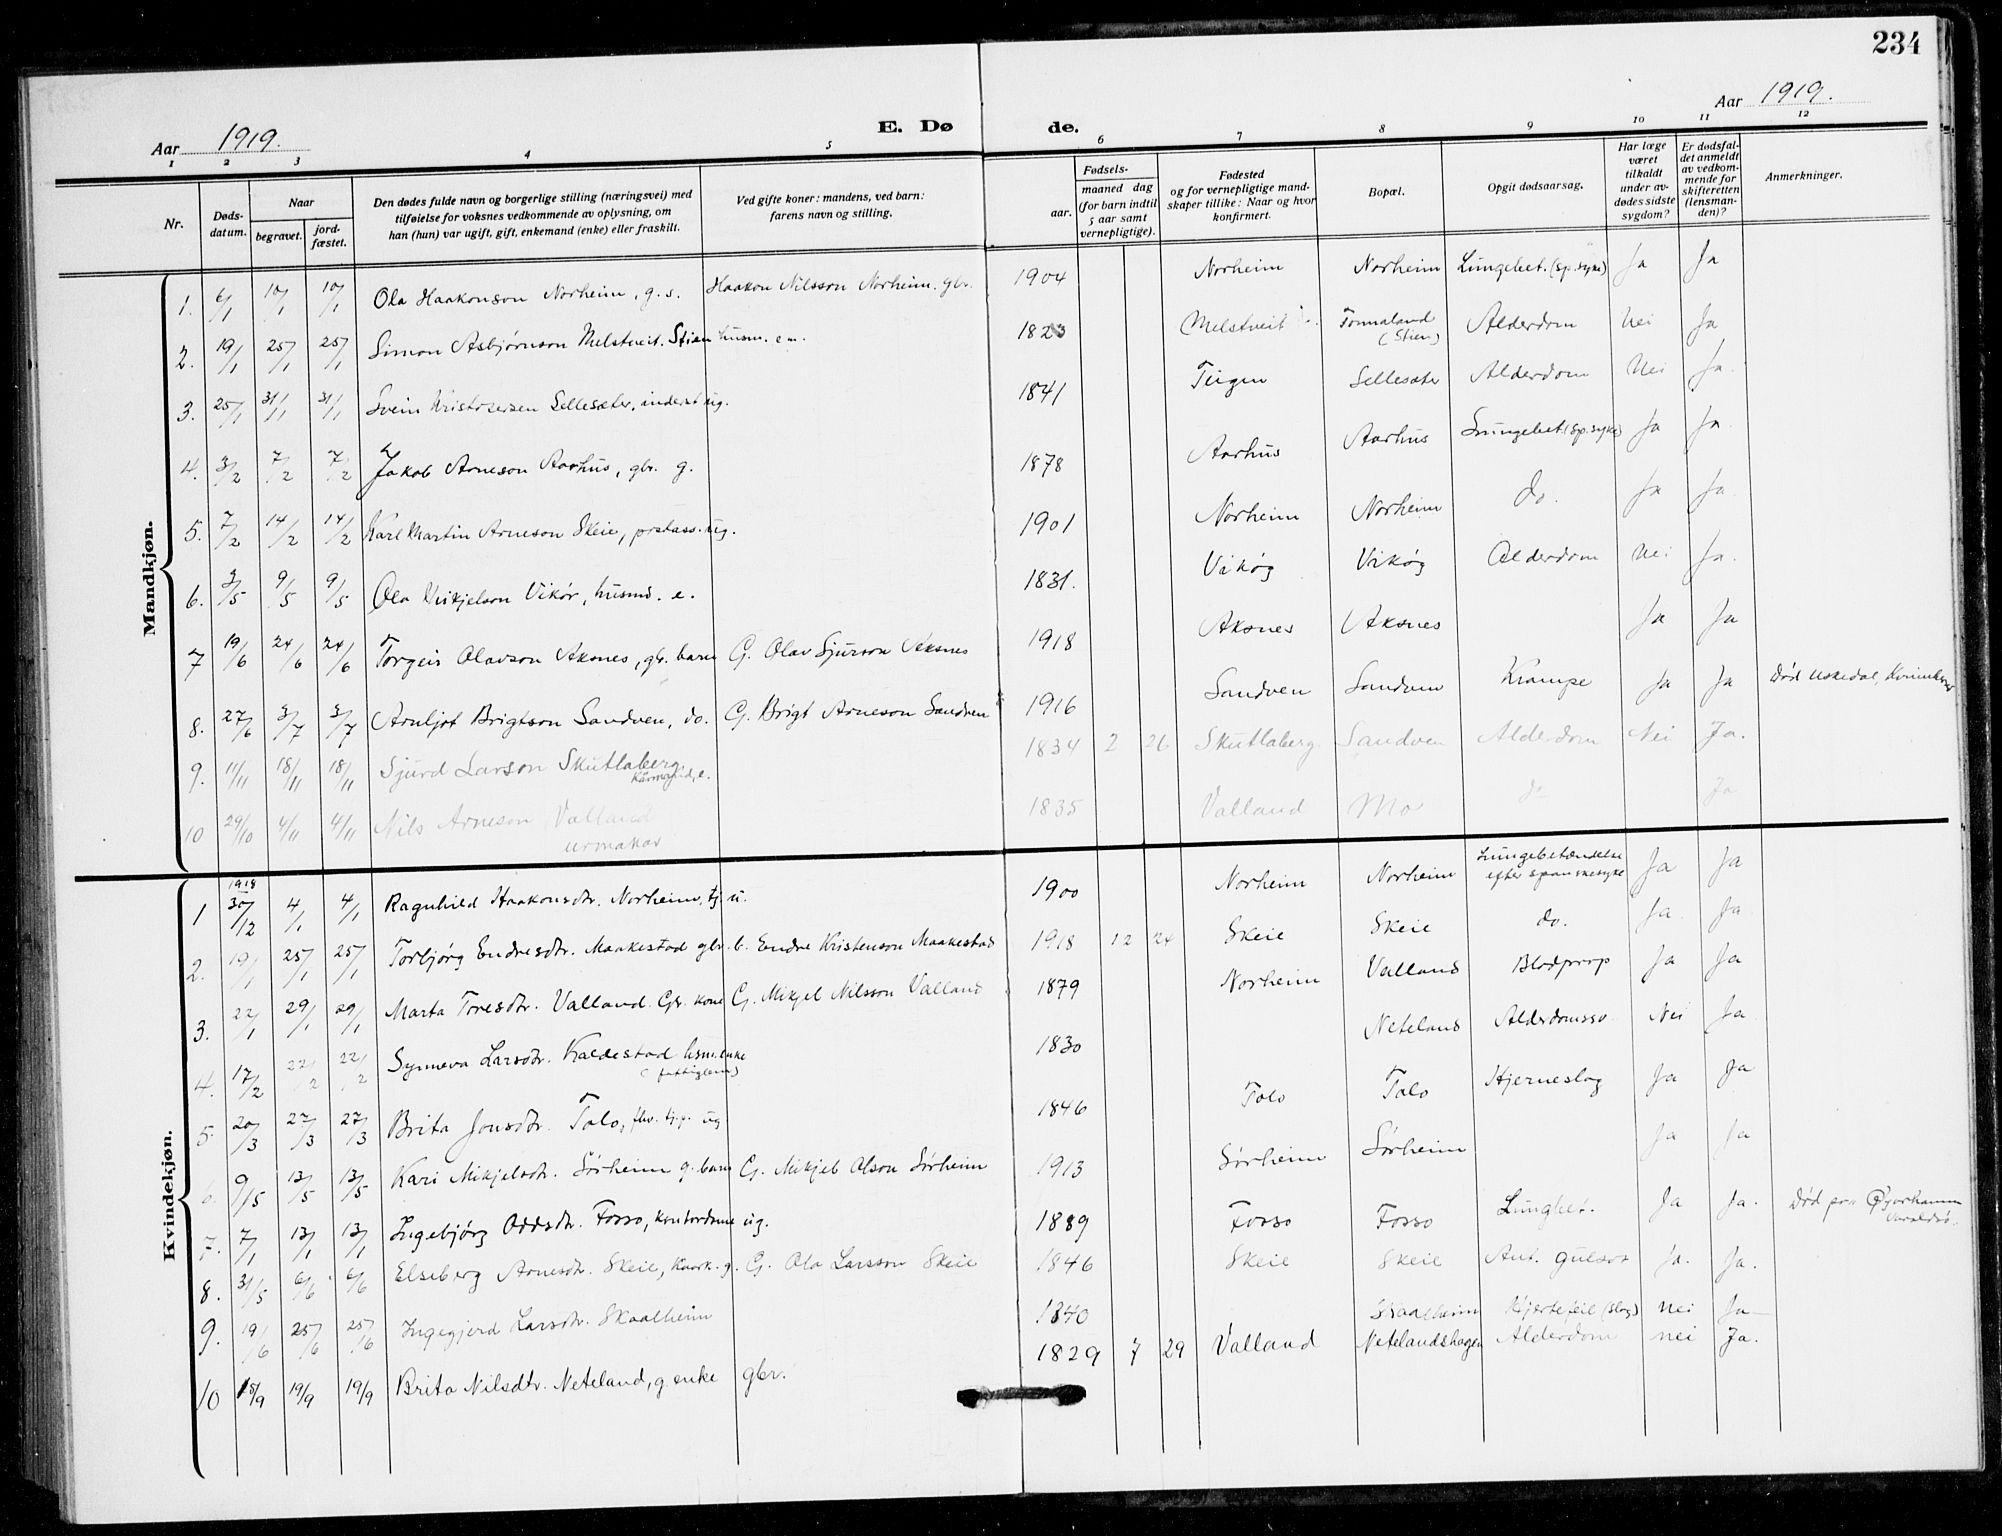 234
Aar 1919.
E. Døde.
Aar 1919.
1 2 3 4 5 6 7 8 9 10 11 12
Nr.
Døds-
datum.
Naar
begravet.
jord-
fæstet.
Den dødes fulde navn og borgerlige stilling (næringsvei) med
tilføielse for voksnes vedkommende av oplysning, om
han (hun) var ugift, gift, enkemand (enke) eller fraskilt.
Ved gifte koner: mandens, ved barn:
farens navn og stilling.
Fødsels-
aar.
maaned dag
(for barn indtil
5 aar samt
vernepligtige).
Fødested
og for vernepligtige mand-
skaper tillike: Naar og hvor
konfirmert.
Bopæl.
Opgit dødsaarsag.
Har læge
været
tilkaldt
under av-
dødes sidste
sygdom?
Er dødsfal-
det anmeldt
av vedkom-
mende for
skifteretten
(lensman-
den)?
Anmerkninger.
Mandkjøn.
1. 6/1 10/1 10/1 Ola Haakonson Norheim, g. s. Haakon Nilsson Norheim. gbr. 1904 Norheim Norheim Lungebet. (sp.syke) Ja Ja
2. 19/1 25/1 25/1 Simon Asbjørnson Melstveit. Stien husm. em. 1823 Melstveit Tormaland (Stien) Alderdom Nei Ja
3. 25/1 31/1 31/1 Svein Kristofersen Sellesæter, inderst ug. 1841 Teigen Sellesæter Alderdom Nei Ja.
4. 3/2 7/2 7/2 Jakob Arneson Aarhus, gbr. g. 1878 Aarhus Aarhus Lungebet. (sp.syke) Ja Ja.
5. 7/2 14/2 14/2 Karl Martin Arneson Skeie, postass. ug. 1901 Norheim Norheim do. Ja Ja.
6. 3/5 9/5 9/5 Ola Mikjelson Vikør, husmd. e. 1831. Vikøy Vikøy Alderdom Nei Ja.
7 19/6 24/6 24/6 Torgeir Olavson Aksnes, gbr. barn G. Olav Sjurson Aksnes 1918 Aksnes Aksnes Ja Ja
8. 27/6 3/7 3/7 Arnljot Brigtson Sandven, do. G. Brigt Arneson Sandven 1916 Sandven Sandven Krampe Ja Ja Død Uskedal, Kvinnherad
9. 11/11 18/11 18/11 Sjurd Larson Skutlaberg. Kårmand, e. 1834 2 26 Skutlaberg Sandven Alderdom Nei Ja.
10 29/10 4/11 4/11 Nils Arneson Valland urmakar 1835 Valland Mo do Ja
Kvindekjøn.
1 1918 30/12 4/1 4/1 Ragnhild Haakonsdtr. Norheim, tj. u. 1900 Norheim Norheim Lungebetændelse efter spanskesyke Ja Ja
2. 19/1 25/1 25/1 Torbjørg Endresdtr. Maakestad gbr. b. Endre Kristenson Maakestad 1918 12 24 Skeie Skeie do. Ja. Ja.
3. 22/1 29/1 29/1 Marta Toresdtr. Valland. Gbr. kone G. Mikjel Nilsson Valland 1879 Norheim Valland Blodprop Ja Ja
4. 17/2 22/2 22/2 Synneva Larsdtr. Kaldestad husm. enke (fattiglem) 1830 Neteland Alderdomssv. Nei Ja
5. 20/3 27/3 27/3 Brita Jonsdtr. Tolo, fhv. tj.p. ug 1846 Tolo Tolo Hjerneslag Ja Ja
6. 9/5 13/5 13/5 Kari Mikjelsdtr. Sørheim g. barn G. Mikjel Olson Sørheim 1913 Sørheim Sørheim Ja Ja
7. 7/1 13/1 13/1 Ingebjørg Oddsdtr. Fosso, kontordame ug. 1889 Fosso Fosso Lungbet. Ja Ja. Død paa Gjerhamn Varaldsø.
8. 31/5 6/6 6/6 Elseberg Arnesdtr. Skeie, Kaark. g. G. Ola Larsson Skeie 1846 Skeie Skeie Ant. gulsot Ja. Ja.
9. 19/6 25/6 25/6 Ingegjerd Larsdtr. Skaalheim 1840 Skaalheim Hjertefeil (slag) nei Ja
10 15/9 19/9 19/9 Brita Nilsdtr. Neteland, g. enke gbr. 1829 7 29 Valland Netelandshagen Alderdom nei Ja.